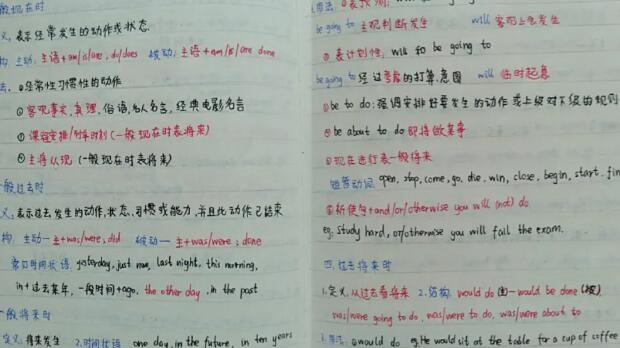 般现在时
义,表示经常发生的动作或状态
构 主动:主语+am/is/are, do/does 被动:主语+am/is/are done
法,①经常性习惯性的动作
②客观事实,真理,俗语,名人名言,经典电影名言
③课程安排/列车时刻(一般现在时表将来)
④主将从现(一般现在时表将来)
般过去时
义,表示过去发生的动作,状态,习惯或能力,并且此动作已结束
构:主动—主+was/were, did 被动—主+was/were; done
常见时间状语 yesterday, just now, last night, this morning,
in+过去某年,一般时间+ago, the other day, in the past
一般将来时
定义,将来发生 2.时间状语 one day, in the future, in ten years
①表预测,
be going to 主观判断发生 will 客观上会发生
②表计划性, will to be going to
be going to 经过考虑的打算,意图 will 临时起意
③be to do:强调安排好要发生的动作或上级对下级的规则
④be about to do 即将做某事
⑤现在进行表一般将来
短暂动词 open, stop, come, go, die, win, close, begin, start, fin
⑥祈使句+and/or/otherwise you will (not) do
eg. study hard, or/otherwise you will fail the exam.
四.过去将来时
1.定义,从过去看将来 2.结构, would do (主)—would be done (被)
was/were going to do, was/were to do, was/were about to
①would do eg. He would sit at the table for a cup of coffee